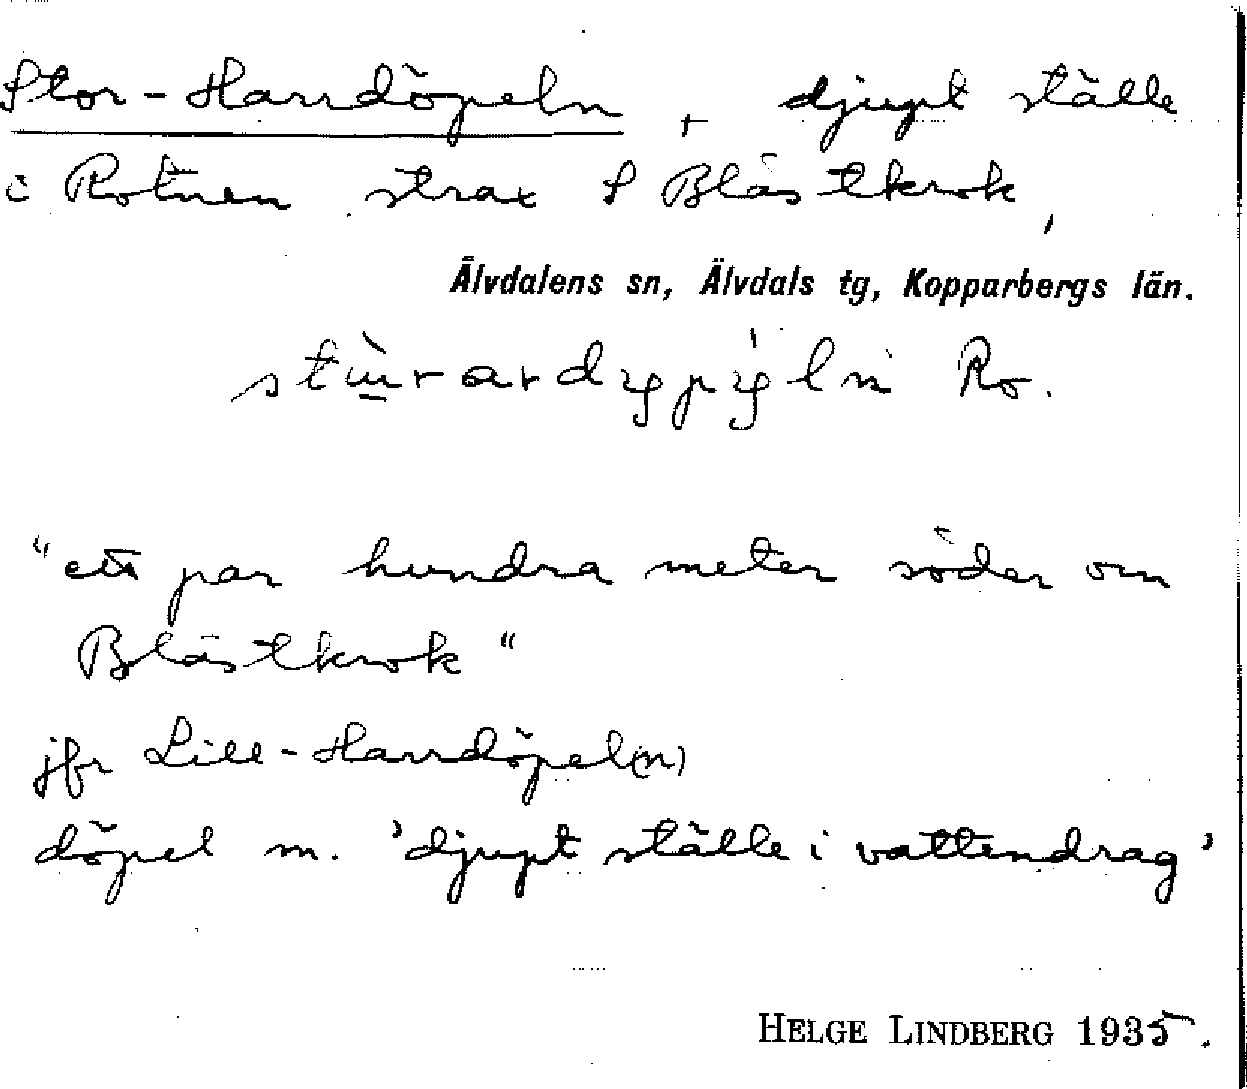 Stor-Harrdöpeln, djupt ställe
i Rotnen strax S Blåstkrok,
Älvdalens sn, Älvdals tg, Kopparbergs län.
Ro.
"ett par hundra meter söder om
Blåstkrok"
jfr Lill-Harrdöpel(n)
döpel m. 'djupt ställe i vattendrag'
HELGE LINDBERG 1935.